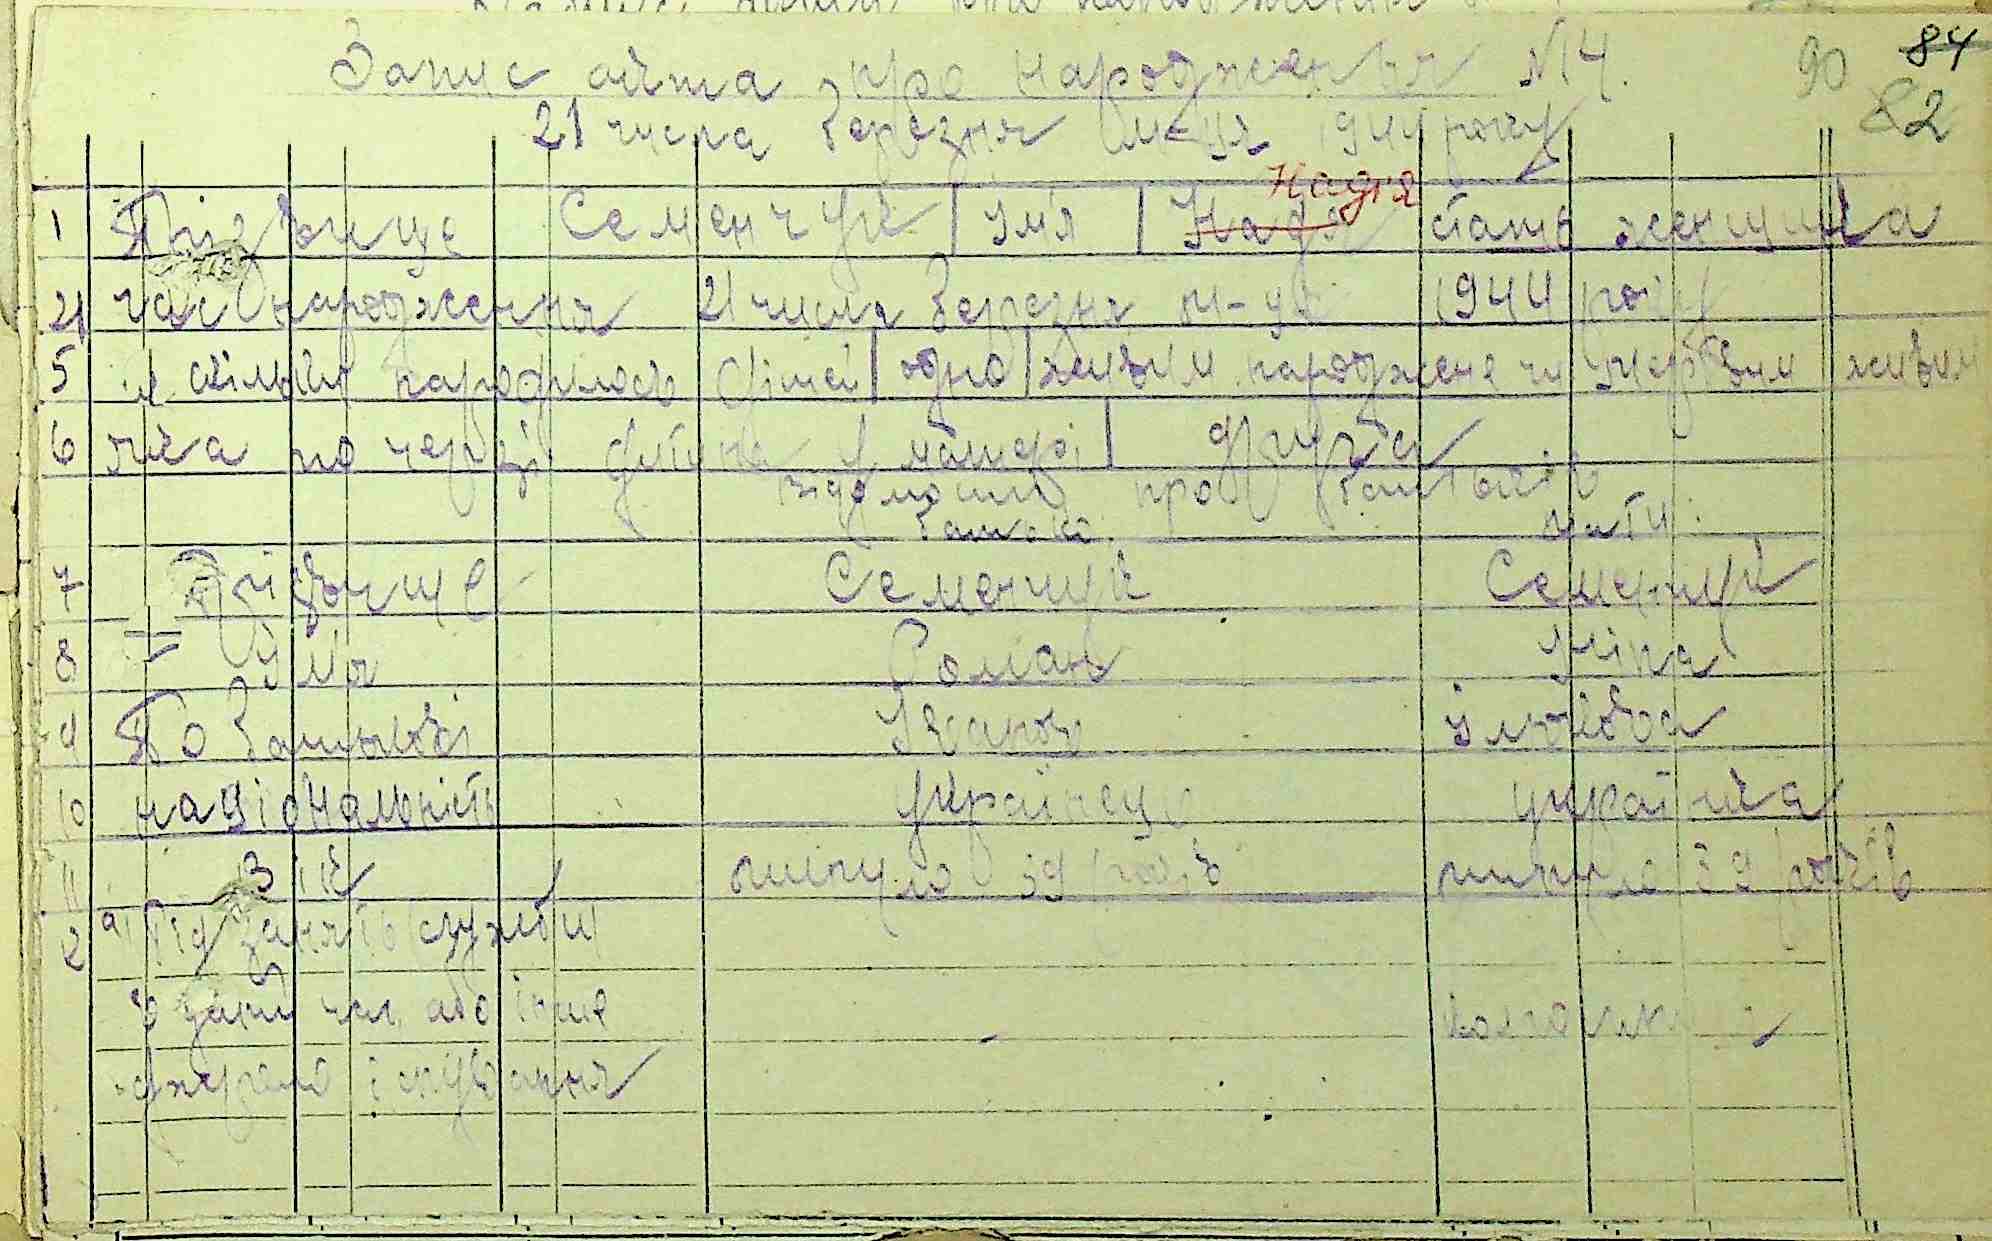 Запис акта про народження №14. 90 84
21 числа березня м-ця 1944 року 82
Надія
1 Прізвище Семенчук | імя | Надя стать женщина
4 час народження 21 числа березня м-ця 1944 року
5 скільки народилось дітей | одно | живим народжене чи мертвим живим
6 яка по черзі дитина у матері | друга
Відомості про батьків
батько. мати.
7 Прізвище Семенчук Семенчук
8 імя Роман
9 По батькові Іванов Ільківна
10 національність українець українка
11 Вік минуло 39 років минуло 39 років
12 а) Рід занять служби
в даний час або інше
джерело існування